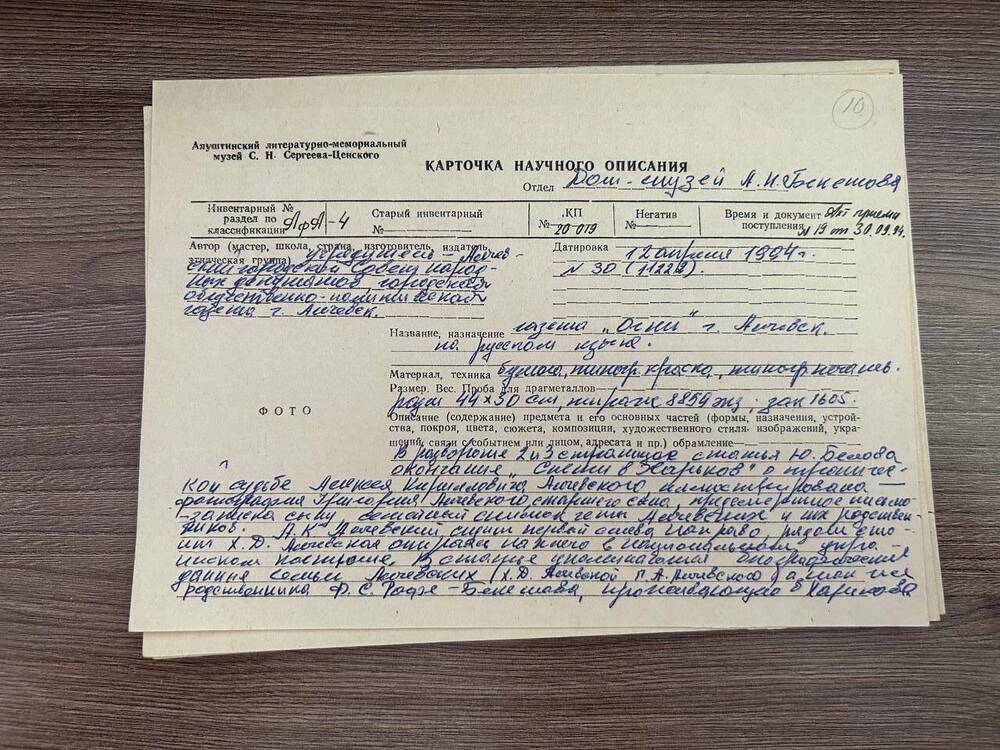 10
Алуштинский литературно-мемориальный
музей С. Н. Сергеева-Ценского
КАРТОЧКА НАУЧНОГО ОПИСАНИЯ
Отдел Дом-музей А.Н. Бекетова
Инвентарный №
раздел по
классификации АфА-4
Старый инвентарный
№
КП
№ 20 019
Негатив
№
Время и документ
поступления Акт приема
№ 19 от 30.09.94.
Автор (мастер, школа, страна, изготовитель, издатель,
этническая группа) учредитель – Алчев-
ский городской Совет народ-
ных депутатов, городская
общественно-политическая
газета г. Алчевск
Датировка 12 апреля 1994г.
№ 30 (11229)
Название, назначение газета „Огни" г. Алчевск.
на русском языке.
Материал, техника бумага, типогр. краска, типогр. печать.
Размер. Вес. Проба для драгметаллов
разм 44х30 см, тираж 8859 экз; зак 1605.
ФОТО
Описание (содержание) предмета и его основных частей (формы, назначения, устрой-
ства, покроя, цвета, сюжета, композиции, художественного стиля изображений, укра-
шений, связи с событием или лицом, адресата и пр.) обрамление
В развороте 2 и 3 страницы статья Ю. Белова
окончание „Спеши в Харьков" о трагичес-
кой судьбе Алексея Кирилловича Алчевского, иллюстрирована
фотография Григория Алчевского старшего сына, предсмертное письмо
-записка сыну, семейный снимок четы Алчевских и их родствен-
ников. А.К. Алчевский сидит первый слева направо, рядом сто-
ит Х.Д. Алчевская в национальном укра-
инском костюме. В статье упоминаются биографические
данные семьи Алчевских (Х.Д. Алчевской Г.А. Алчевского) а
родственника Ф.С. Бекетова, в Харькове